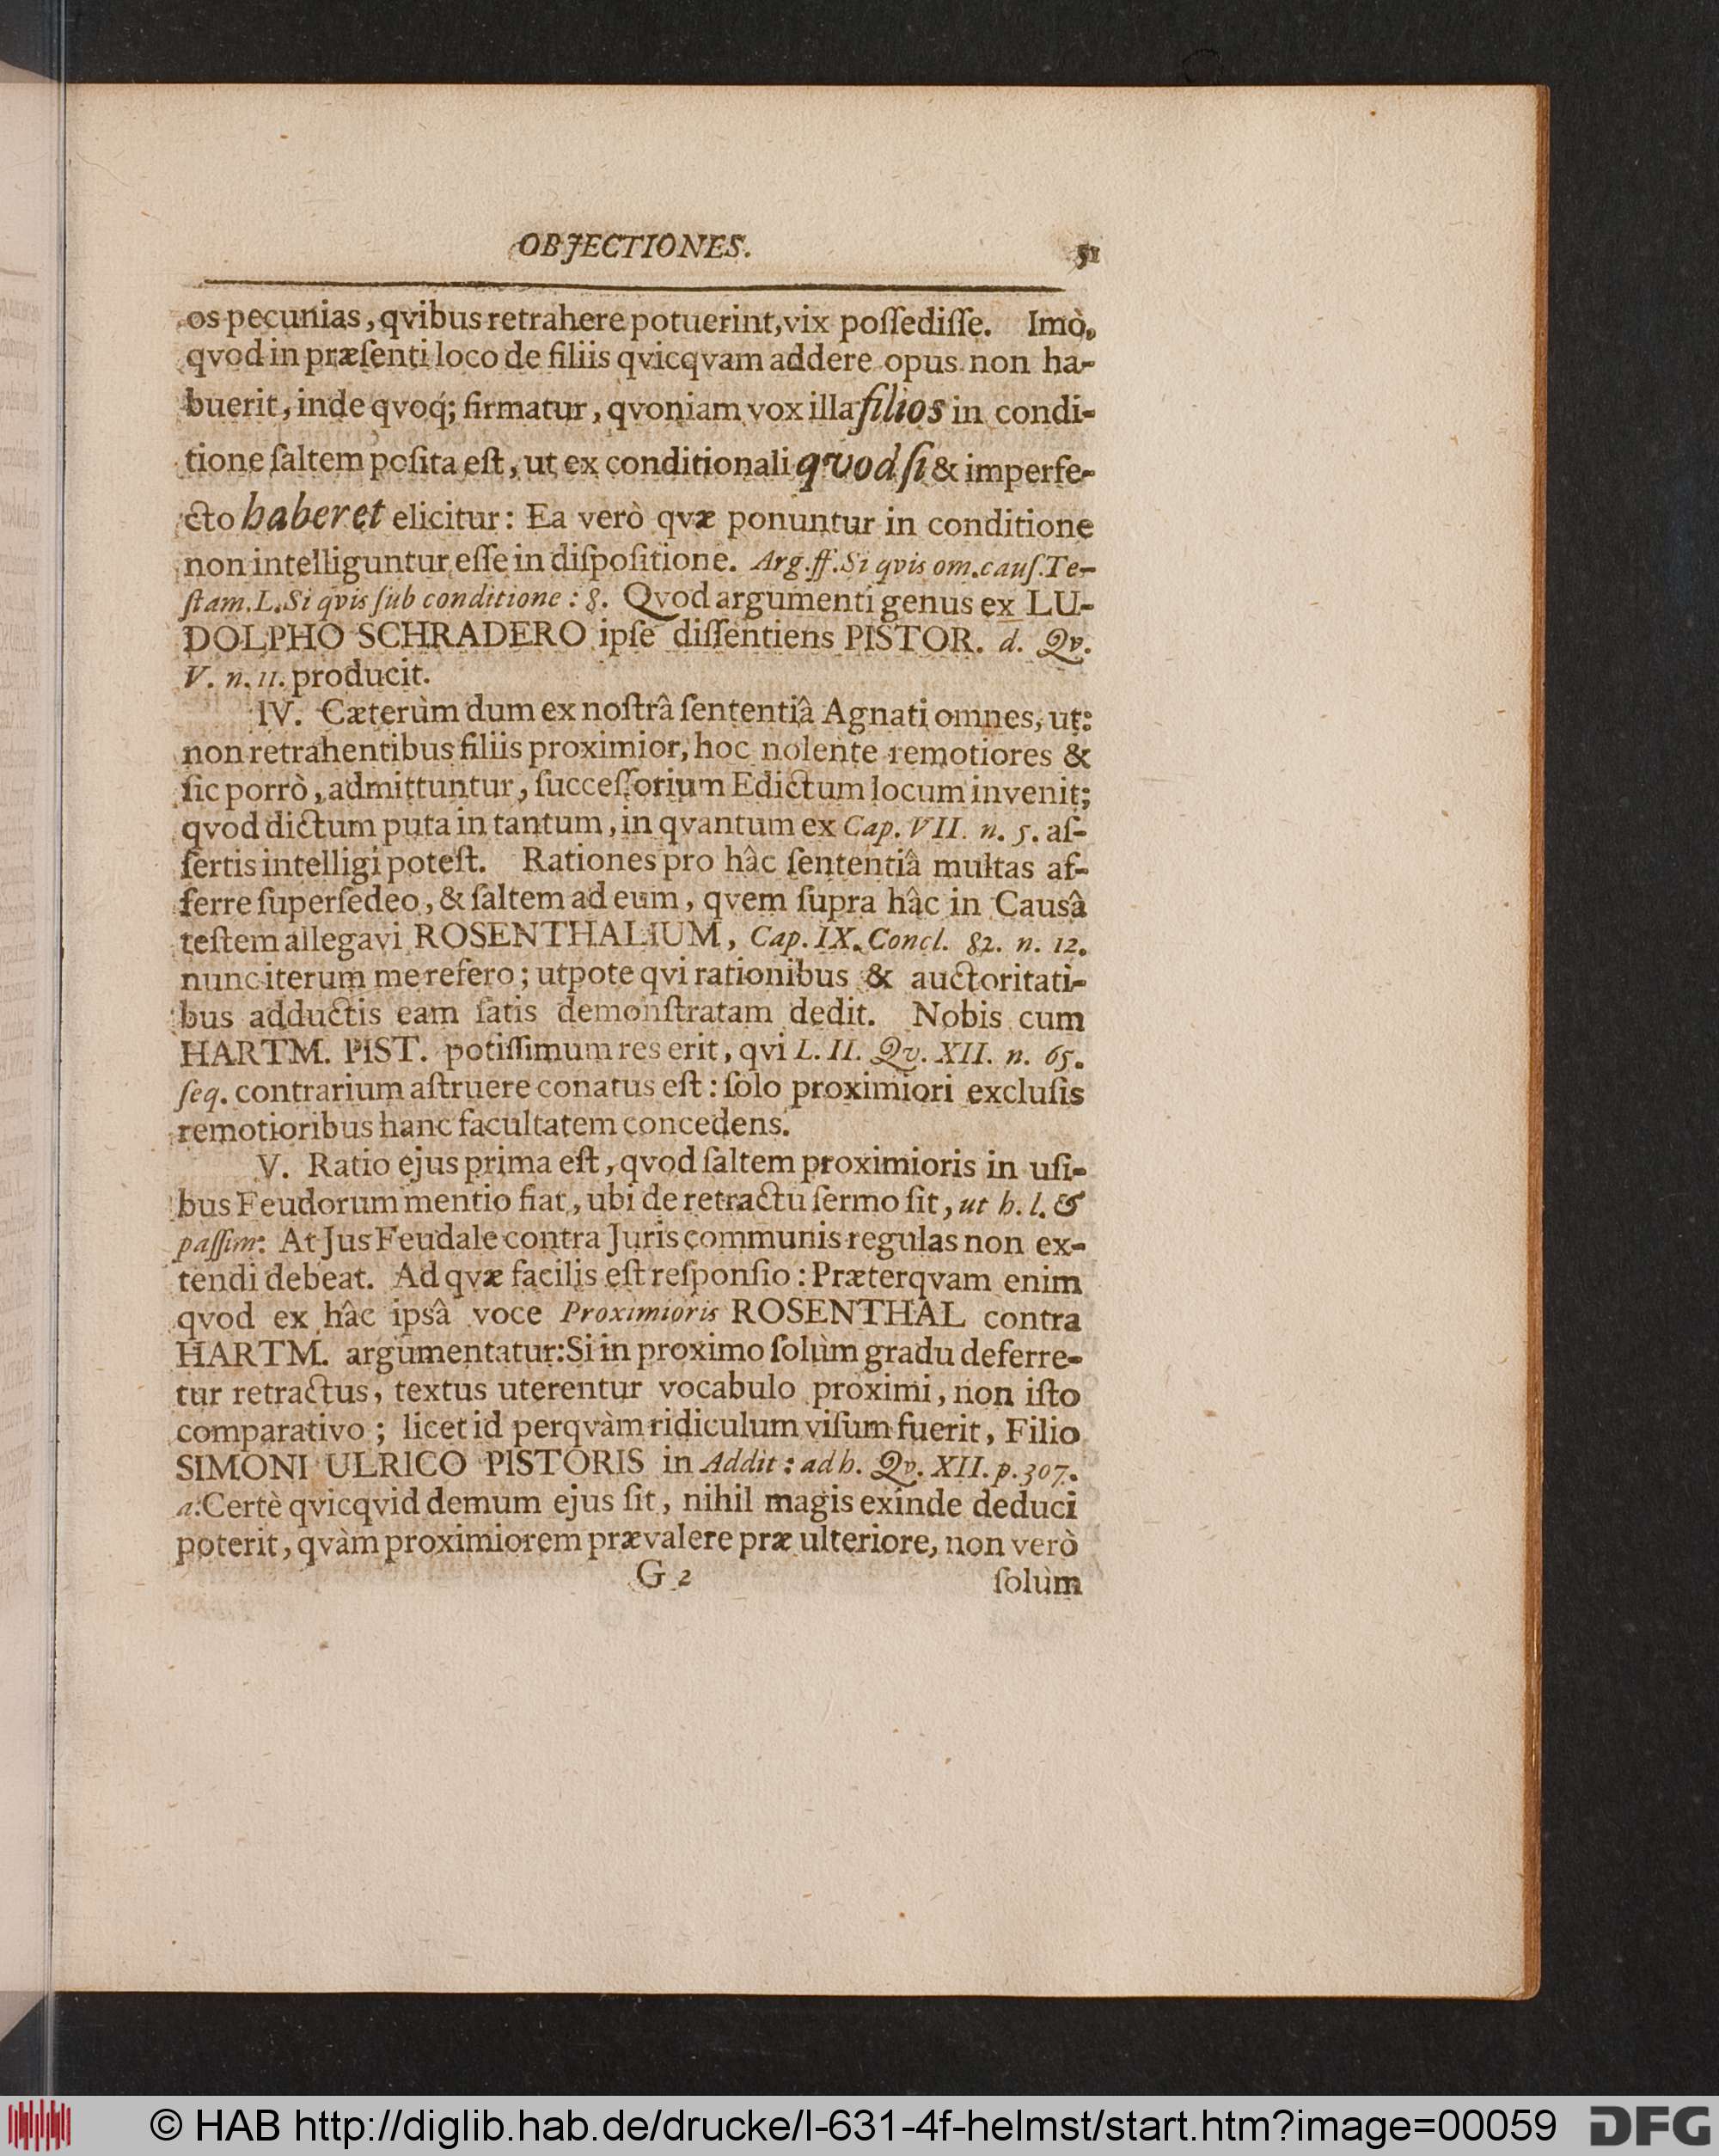 OBJECTIONES. 51
os pecunias, qvibus retrahere potuerint, vix poſſediſſe. Imò,
qvod in præſenti loco de filiis qvicqvam addere opus non ha-
buerit, inde qvoq́; firmatur, qvoniam vox illa filios in condi-
tione ſaltem poſita eſt, ut ex conditionali qvod ſi & imperfe-
cto haberet elicitur: Ea verò qvæ ponuntur in conditione
non intelliguntur eſſe in diſpoſitione. Arg. ff. Si qvis om. cauſ. Te-
ſtam. L. Si qvis ſub conditione: 8. Qvod argumenti genus ex LU-
DOLPHO SCHRADERO ipſe diſſentiens PISTOR. d. Qv.
V. n. 11. producit.
IV. Cæterùm dum ex noſtrâ ſententiâ Agnati omnes, ut:
non retrahentibus filiis proximior, hoc nolente remotiores &
ſic porrò, admittuntur, ſucceſſorium Edictum locum invenit;
qvod dictum puta in tantum, in qvantum ex Cap. VII. n. 5. aſ-
ſertis intelligi poteſt. Rationes pro hâc ſententiâ multas af-
ferre ſuperſedeo, & ſaltem ad eum, qvem ſupra hâc in Causâ
teſtem allegavi ROSENTHALIUM, Cap. IX. Concl. 82. n. 12.
nunc iterum me refero; utpote qvi rationibus & auctoritati-
bus adductis eam ſatis demonſtratam dedit. Nobis cum
HARTM. PIST. potiſſimum res erit, qvi L. II. Qv. XII. n. 65.
ſeq. contrarium aſtruere conatus eſt: ſolo proximiori excluſis
remotioribus hanc facultatem concedens.
V. Ratio ejus prima eſt, qvod ſaltem proximioris in uſi-
bus Feudorum mentio fiat, ubi de retractu ſermo ſit, ut h. l. &
paſſim: At Jus Feudale contra Juris communis regulas non ex-
tendi debeat. Ad qvæ facilis eſt reſponſio: Præterqvam enim
qvod ex hâc ipsâ voce Proximioris ROSENTHAL contra
HARTM. argumentatur: Si in proximo ſolùm gradu deferre-
tur retractus, textus uterentur vocabulo proximi, non iſto
comparativo; licet id perqvàm ridiculum viſum fuerit, Filio
SIMONI ULRICO PISTORIS in Addit: ad h. Qv. XII. p. 307.
a. Certè qvicqvid demum ejus ſit, nihil magis exinde deduci
poterit, qvàm proximiorem prævalere præ ulteriore, non verò
G 2 ſolùm
© HAB http://diglib.hab.de/drucke/l-631-4f-helmst/start.htm?image=00059 DFG